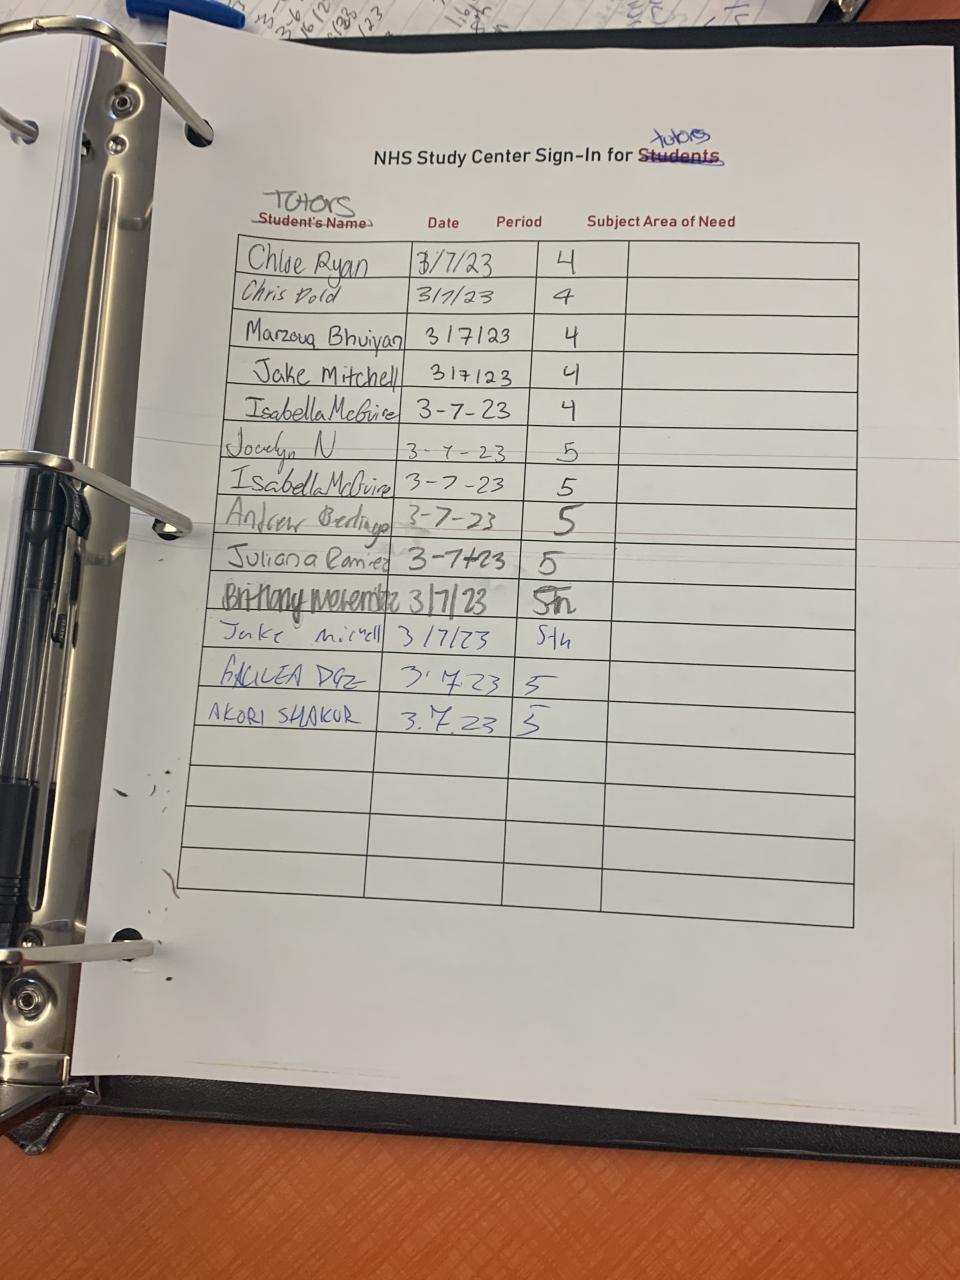 tutors
NHS Study Center Sign-In for Students
TUtORS
Student's Name Date Period Subject Area of Need
Chloe Ryan 3/7/23 4
Chris Dold 3/7/23 4
Marzouq Bhuiyan 3/7/23 4
Jake Mitchell 3/7/23 4
Isabella McGuire 3-7-23 4
Jocelyn N 3-7-23 5
Isabella McGuire 3-7-23 5
Andrew 3-7-23 5
Juliana 3-7-23 5
Brittany 3/7/23 5th
Jake 3/7/23 5th
GALILEA DGZ 3.7.23 5
AKORI SHAKUR 3.7.23 5